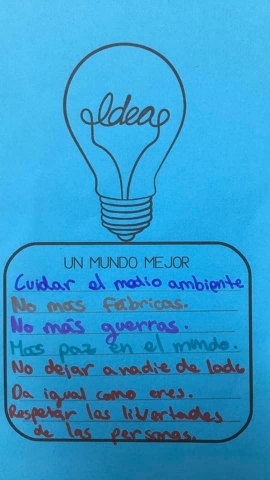 Idea
UN MUNDO MEJOR
Cuidar el medio ambiente
No mas fabricas.
No más guerras.
Mas paz en el mundo.
No dejar a nadie de lado
Da igual como eres.
Respetar las libertades
de las personas.